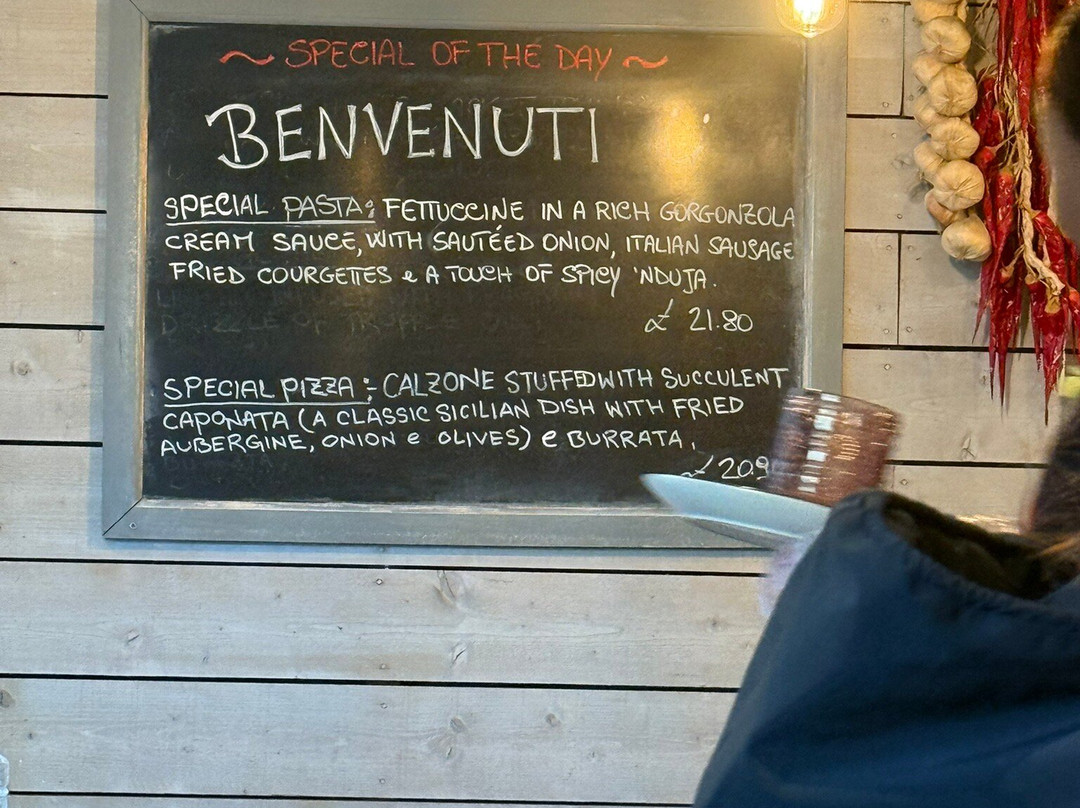 ~ SPECIAL OF THE DAY ~
BENVENUTI
SPECIAL PASTA: FETTUCCINE IN A RICH GORGONZOLA
CREAM SAUCE, WITH SAUTÉED ONION, ITALIAN SAUSAGE
FRIED COURGETTES e A TOUCH OF SPICY 'NDUJA.
£ 21.80
SPECIAL PIZZA: CALZONE STUFFED WITH SUCCULENT
CAPONATA (A CLASSIC SICILIAN DISH WITH FRIED
AUBERGINE, ONION e OLIVES) e BURRATA.